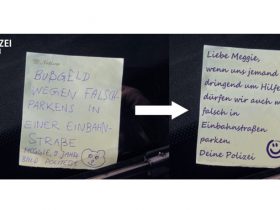 ZEI
Notizen
BUßGELD
WEGEN FALSCH
PARKENS IN
EINER EINBAHN-
STRAßE
MEGGIE, 9 JAHRE
BALD POLITESSE
Liebe Meggie,
wenn uns jemand
dringend um Hilfe
dürfen wir auch mal
falsch in
Einbahnstraßen
parken.
Deine Polizei